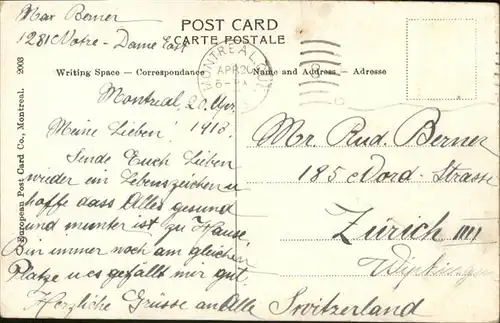 Max Berner
1281 Notre-Dame East
POST CARD
CARTE POSTALE
Writing Space — Correspondance
Name and Address — Adresse
MONTREAL
APR 20
6-PM
European Post Card Co., Montreal. 2003
Montreal 20 Apr.
Meine Lieben! 1910.
Sende Euch Lieben
wieder ein Lebenszeichen u
hoffe dass Alles gesund
und munter ist zu Hause,
Bin immer noch am gleichen
Platze u es gefällt mir gut.
Herzliche Grüsse an Alle
Mr. Rud. Berner
185 Nord-Strasse
Zürich IIII
Wipkingen
Switzerland